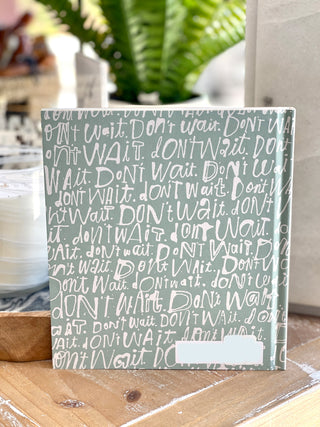 Don't wait. Don't wait. Don't
Don't WAIT. DON'T wait. dON'T WAIT.
WAIT. DON'T Wait. Don't
DON'T WAIT. dONt wait. Don't
wait. DON'T wait. don't
don't WAIT. DON'T wait.
WAIT. don't wait. DON'T wait.
wait. DON'T wait. Don't
Don't wait. DON'T WAIT. Don't
dON'T WAIT. Don't wait.
wait. Don't wait. Don't
DON'T WAIT. don't
Don't Wait. DON'T